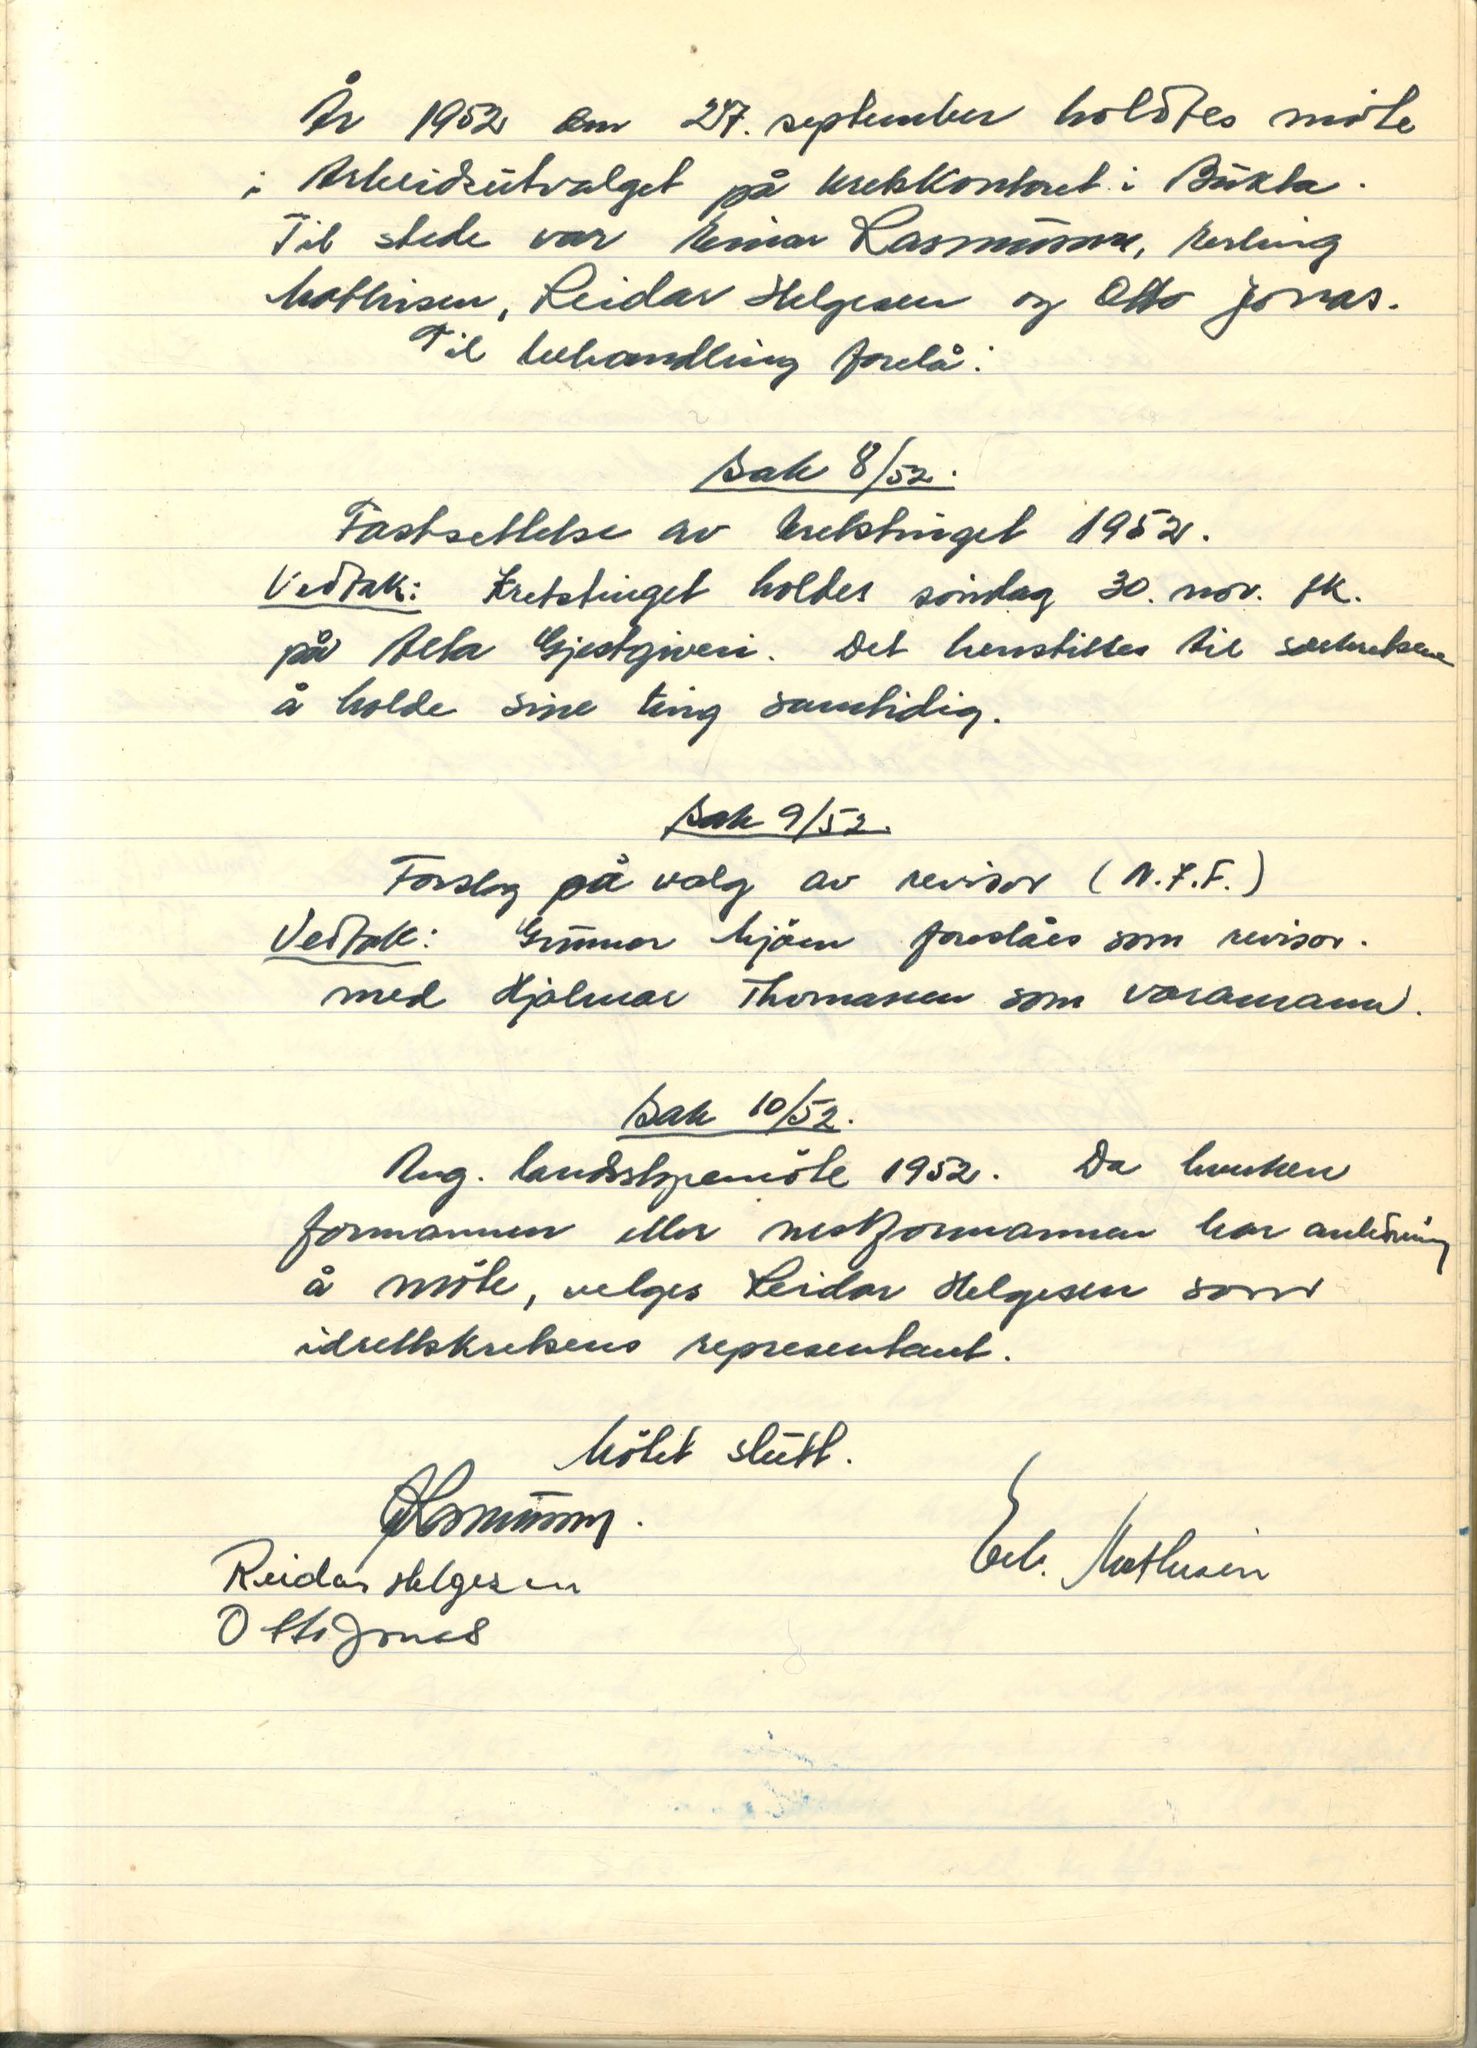 År 1952 den 27. september holdtes möte
i Arbeidsutvalget på kretskontoret i Bukta.
Til stede var Einar Rasmussen, Erling
Mathisen, Reidar Helgesen og Otto Jonas.
Til behandling forelå:
Sak 8/52.
Fastsettelse av kretstinget 1952.
Vedtak: Kretstinget holdes söndag 30. nov. fk.
på Alta Gjestgiveri. Det henstilles til særkretsene
å holde sine ting samtidig.
Sak 9/52.
Forslag på valg av revisor (N.F.F.)
Vedtak: Gunnar Mjöen foreslåes som revisor.
med Hjalmar Thomassen som varamann.
Sak 10/52.
Ang. landsstyremöte 1952. Da hverken
formannen eller nestformannen har anledning
å möte, velges Reidar Helgesen som
idrettskretsens representant.
Mötet slutt.
Rasmussen.
Erl. Mathisen
Reidar Helgesen
Otto Jonas